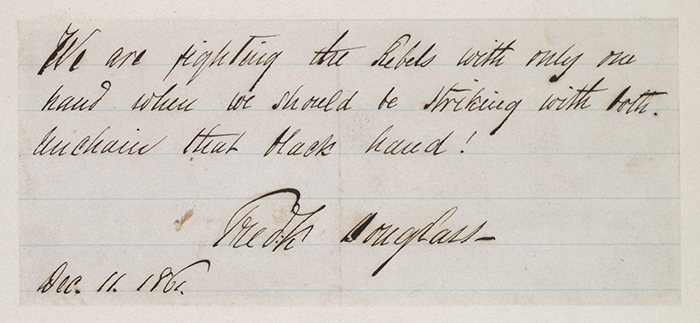 We are fighting the Rebels with only one
hand when we should be striking with both.
Unchain that black hand!
Fredk Douglass—
Dec. 11. 1861.